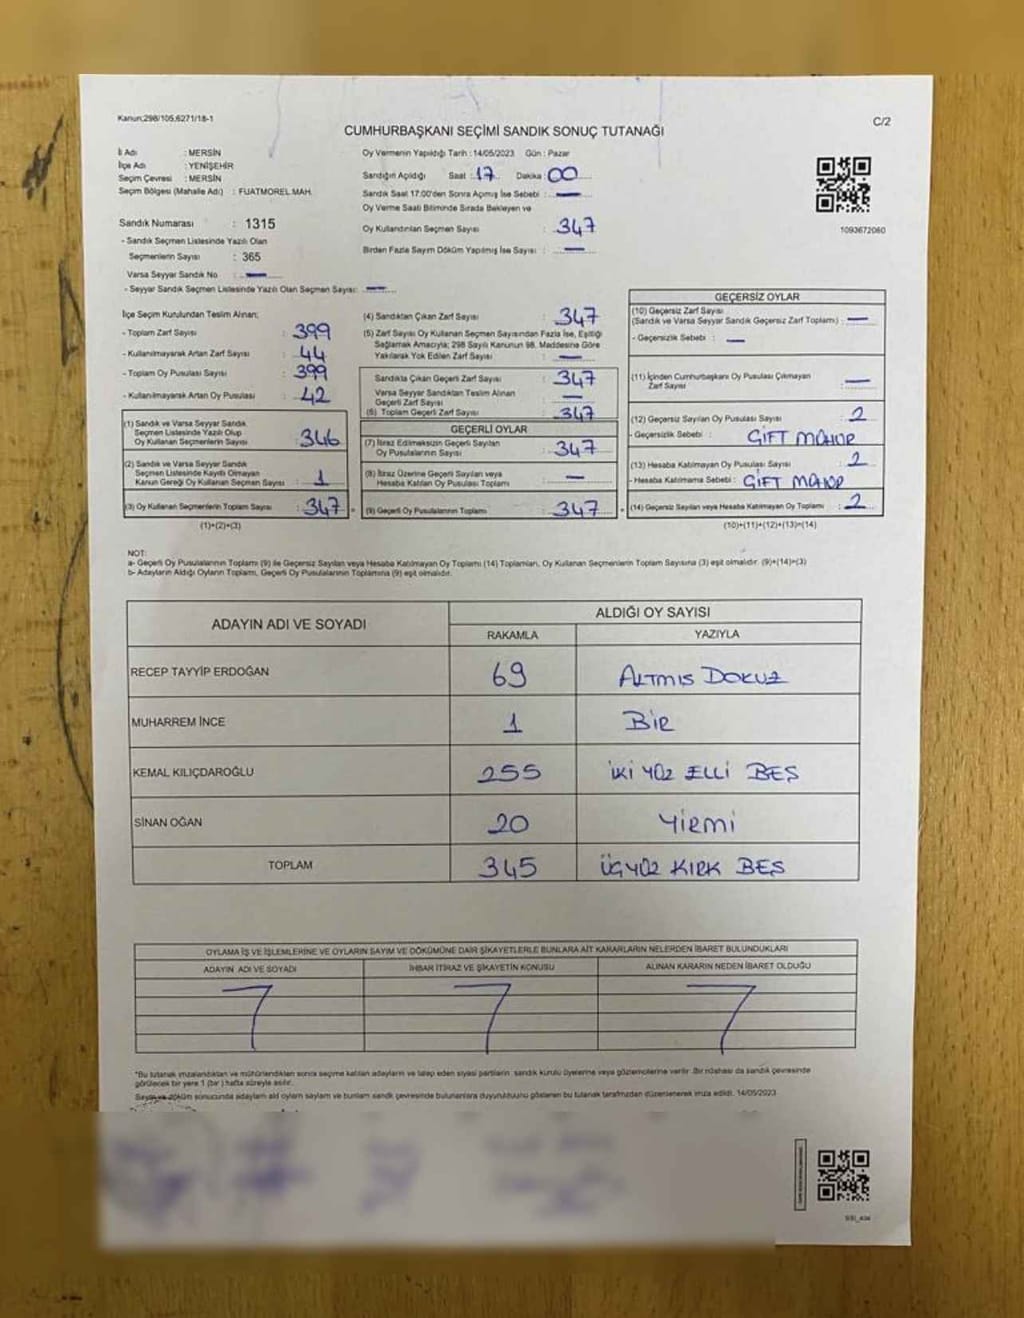 Kanun;298/105,6271/18-1
C/2
CUMHURBAŞKANI SEÇİMİ SANDIK SONUÇ TUTANAĞI
İl Adı : MERSİN
İlçe Adı : YENİŞEHİR
Seçim Çevresi : MERSİN
Seçim Bölgesi (Mahalle Adı) : FUATMOREL MAH.
Oy Vermenin Yapıldığı Tarih : 14/05/2023 Gün : Pazar
Sandığın Açıldığı Saat : 17 Dakika : 00
Sandık Saat 17:00'den Sonra Açılmış İse Sebebi : —
Oy Verme Saati Bitiminde Sırada Bekleyen ve
Oy Kullandırılan Seçmen Sayısı : 347
Birden Fazla Sayım Döküm Yapılmış İse Sayısı : —
1093672060
Sandık Numarası : 1315
- Sandık Seçmen Listesinde Yazılı Olan
Seçmenlerin Sayısı : 365
Varsa Seyyar Sandık No : —
- Seyyar Sandık Seçmen Listesinde Yazılı Olan Seçmen Sayısı: —
İlçe Seçim Kurulundan Teslim Alınan;
- Toplam Zarf Sayısı : 399
- Kullanılmayarak Artan Zarf Sayısı : 44
- Toplam Oy Pusulası Sayısı : 399
- Kullanılmayarak Artan Oy Pusulası : 42
(1) Sandık ve Varsa Seyyar Sandık
Seçmen Listesinde Yazılı Olup
Oy Kullanan Seçmenlerin Sayısı : 346
(2) Sandık ve Varsa Seyyar Sandık
Seçmen Listesinde Kayıtlı Olmayan
Kanun Gereği Oy Kullanan Seçmen Sayısı : 1
(3) Oy Kullanan Seçmenlerin Toplam Sayısı : 347
(1)+(2)=(3)
(4) Sandıktan Çıkan Zarf Sayısı : 347
(5) Zarf Sayısı Oy Kullanan Seçmen Sayısından Fazla İse, Eşitliği
Sağlamak Amacıyla; 298 Sayılı Kanunun 98. Maddesine Göre
Yakılarak Yok Edilen Zarf Sayısı : —
Sandıkta Çıkan Geçerli Zarf Sayısı : 347
Varsa Seyyar Sandıktan Teslim Alınan
Geçerli Zarf Sayısı : —
(6) Toplam Geçerli Zarf Sayısı : 347
GEÇERLİ OYLAR
(7) İtiraz Edilmeksizin Geçerli Sayılan
Oy Pusulalarının Sayısı : 347
(8) İtiraz Üzerine Geçerli Sayılan veya
Hesaba Katılan Oy Pusulası Toplamı : —
(9) Geçerli Oy Pusulalarının Toplamı : 347
GEÇERSİZ OYLAR
(10) Geçersiz Zarf Sayısı
(Sandık ve Varsa Seyyar Sandık Geçersiz Zarf Toplamı) : —
- Geçersizlik Sebebi : —
(11) İçinden Cumhurbaşkanı Oy Pusulası Çıkmayan
Zarf Sayısı : —
(12) Geçersiz Sayılan Oy Pusulası Sayısı : 2
- Geçersizlik Sebebi : ÇİFT MÜHÜR
(13) Hesaba Katılmayan Oy Pusulası Sayısı : 2
- Hesaba Katılmama Sebebi : ÇİFT MÜHÜR
(14) Geçersiz Sayılan veya Hesaba Katılmayan Oy Toplamı : 2
(10)+(11)+(12)+(13)=(14)
NOT:
a- Geçerli Oy Pusulalarının Toplamı (9) ile Geçersiz Sayılan veya Hesaba Katılmayan Oy Toplamı (14) Toplamları, Oy Kullanan Seçmenlerin Toplam Sayısına (3) eşit olmalıdır. (9)+(14)=(3)
b- Adayların Aldığı Oyların Toplamı, Geçerli Oy Pusulalarının Toplamına (9) eşit olmalıdır.
ADAYIN ADI VE SOYADI
ALDIĞI OY SAYISI
RAKAMLA YAZIYLA
RECEP TAYYİP ERDOĞAN 69 ALTMIŞ DOKUZ
MUHARREM İNCE 1 BİR
KEMAL KILIÇDAROĞLU 255 İKİ YÜZ ELLİ BEŞ
SİNAN OĞAN 20 YİRMİ
TOPLAM 345 ÜÇYÜZ KIRK BEŞ
OYLAMA İŞ VE İŞLEMLERİNE VE OYLARIN SAYIM VE DÖKÜMÜNE DAİR ŞİKAYETLERLE BUNLARA AİT KARARLARIN NELERDEN İBARET BULUNDUKLARI
ADAYIN ADI VE SOYADI İHBAR İTİRAZ VE ŞİKAYETİN KONUSU ALINAN KARARIN NEDEN İBARET OLDUĞU
*Bu tutanak imzalandıktan ve mühürlendikten sonra seçime katılan adayların ve talep eden siyasi partilerin sandık kurulu üyelerine veya gözlemcilerine verilir. Bir nüshası da sandık çevresinde
görülecek bir yere 1 (bir) hafta süreyle asılır.
Sayım ve döküm sonucunda adayların aldığı oyların sayıları ve bunların sandık çevresinde bulunanlara duyurulduğunu gösteren bu tutanak tarafımızdan düzenlenerek imza edildi. 14/05/2023